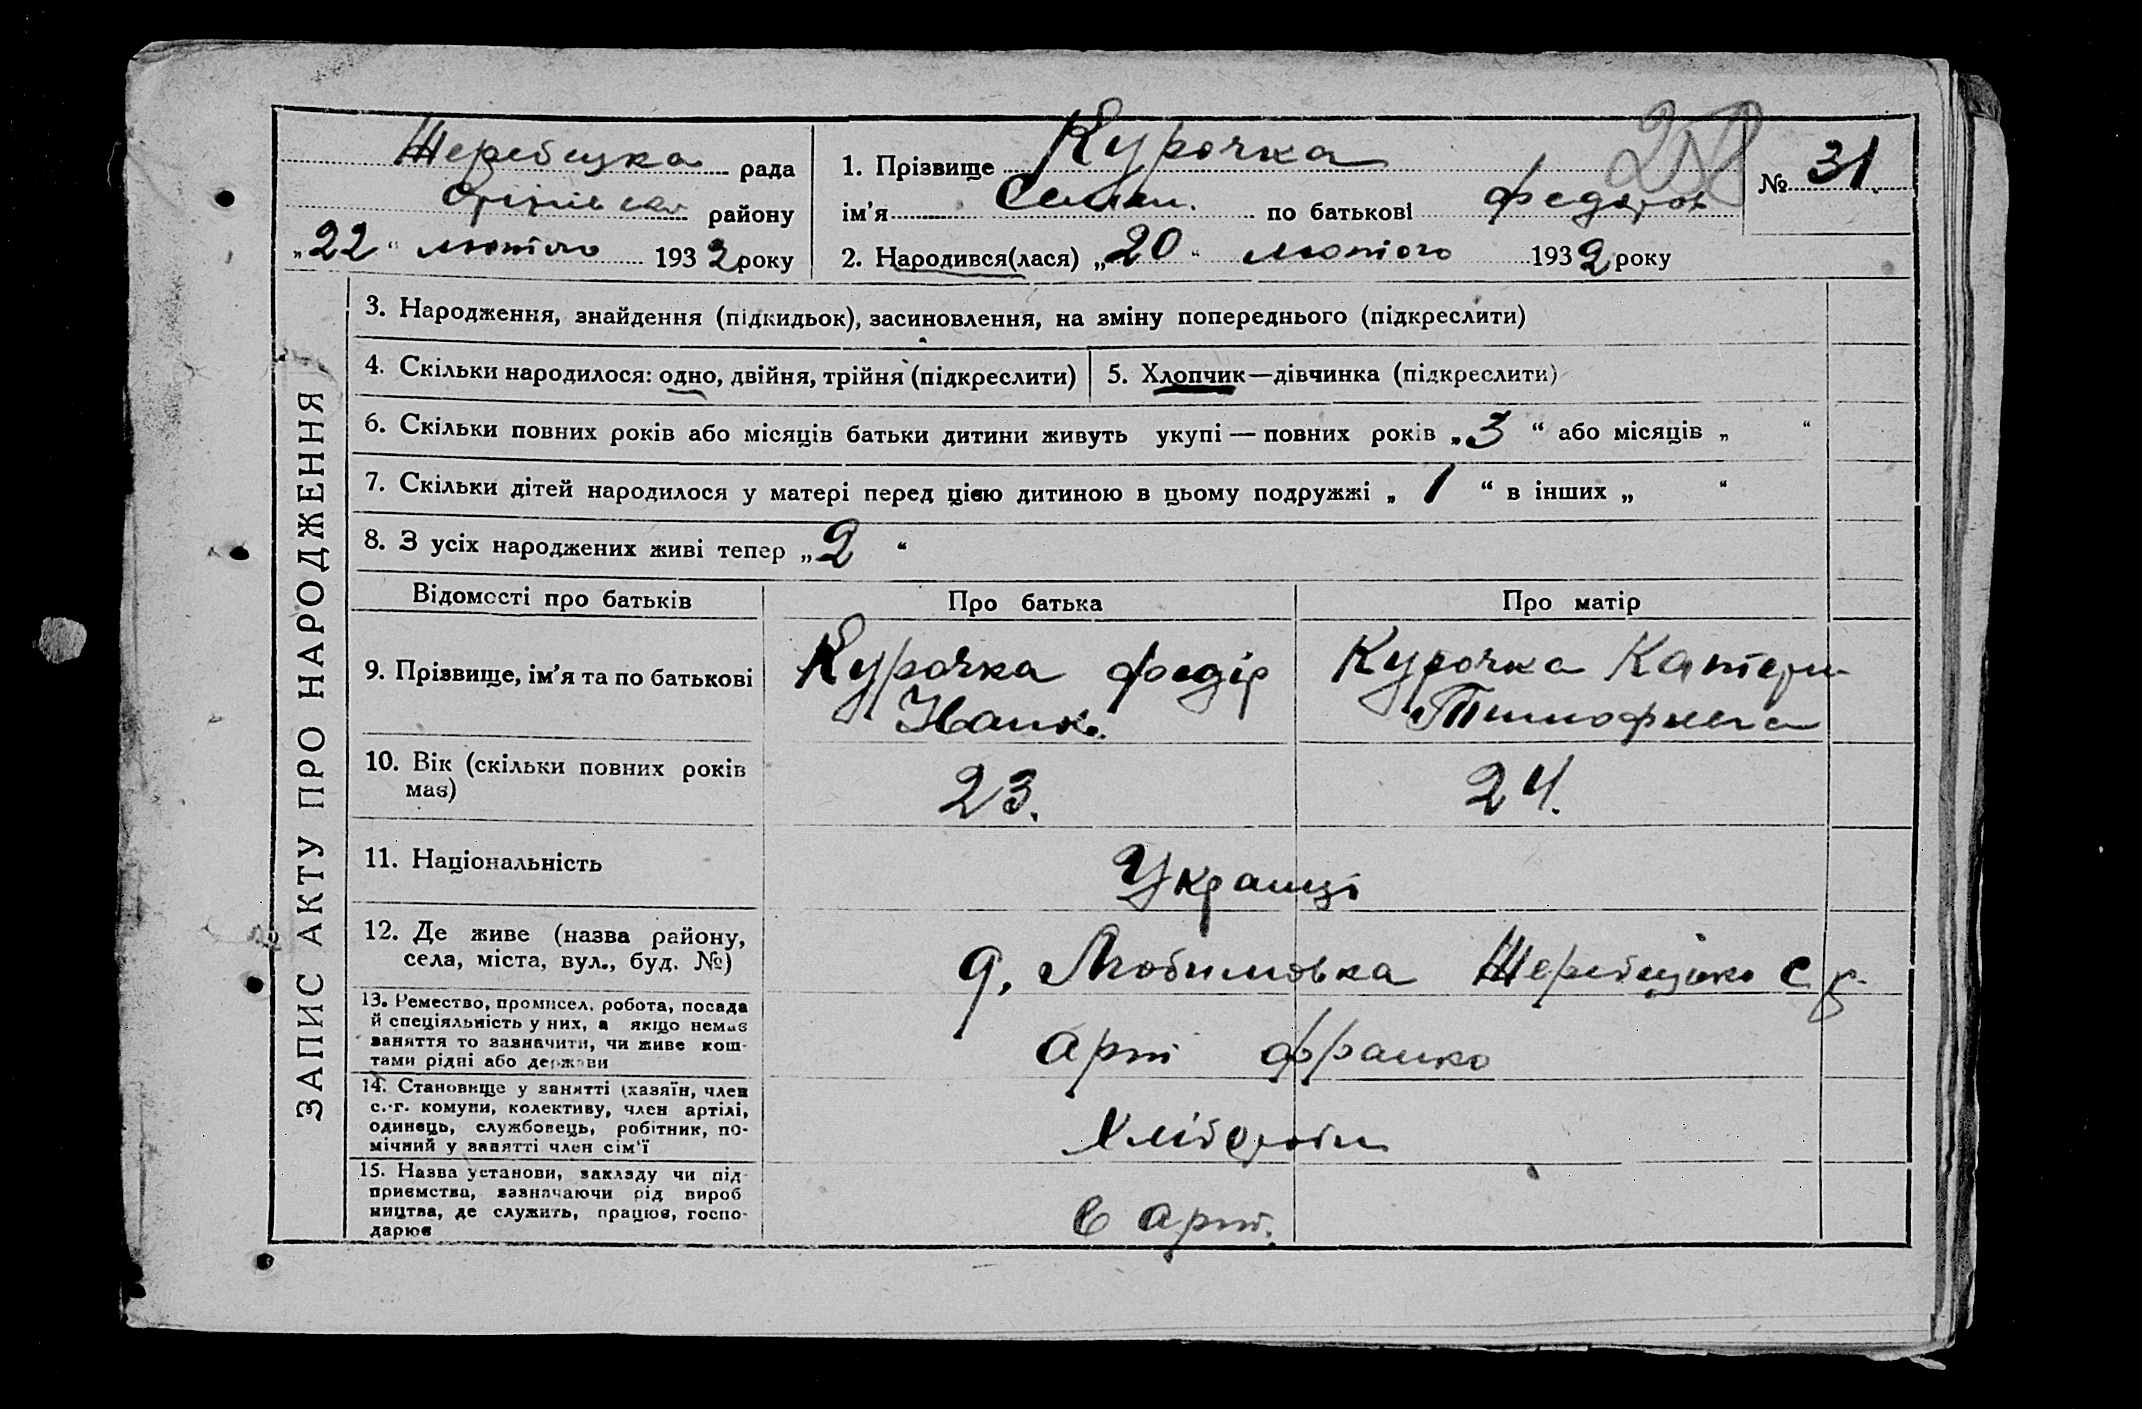 ЗАПИС АКТУ ПРО НАРОДЖЕННЯ
Жеребецка рада
району
„22“ лютого 1932 року
258
№ 31.
1. Прізвище Курочка
ім’я Семен. по батькові Федоров
2. Народився(лася) „20“ лютого 1932 року
3. Народження, знайдення (підкидьок), засиновлення, на зміну попереднього (підкреслити)
4. Скільки народилося: одно, двійня, трійня (підкреслити)
5. Хлопчик—дівчинка (підкреслити)
6. Скільки повних років або місяців батьки дитини живуть укупі — повних років „3“ або місяців „ “
7. Скільки дітей народилося у матері перед цією дитиною в цьому подружжі „1“ в інших „ “
8. З усіх народжених живі тепер „2“
Відомості про батьків Про батька Про матір
9. Прізвище, ім’я та по батькові
Курочка Федір
Иванов.
Курочка Катери
Тимофеевна
10. Вік (скільки повних років
має)
23. 24.
11. Національність
Украинці
12. Де живе (назва району,
села, міста, вул., буд. №)
д. Любимовка Жеребецкоі с р.
13. Ремество, промисел, робота, посада
й спеціяльність у них, а якщо немає
заняття то зазначити, чи живе кош-
тами рідні або держави
Арт Франко
14. Становище у занятті (хазяїн, член
с.-г. комуни, колективу, член артілі,
одинець, службовець, робітник, по-
мічний у занятті член сім’ї
Хлібороби
15. Назва установи, закладу чи під-
приємства, зазначаючи рід вироб
ництва, де служить, працює, госпо-
дарює
в арт.